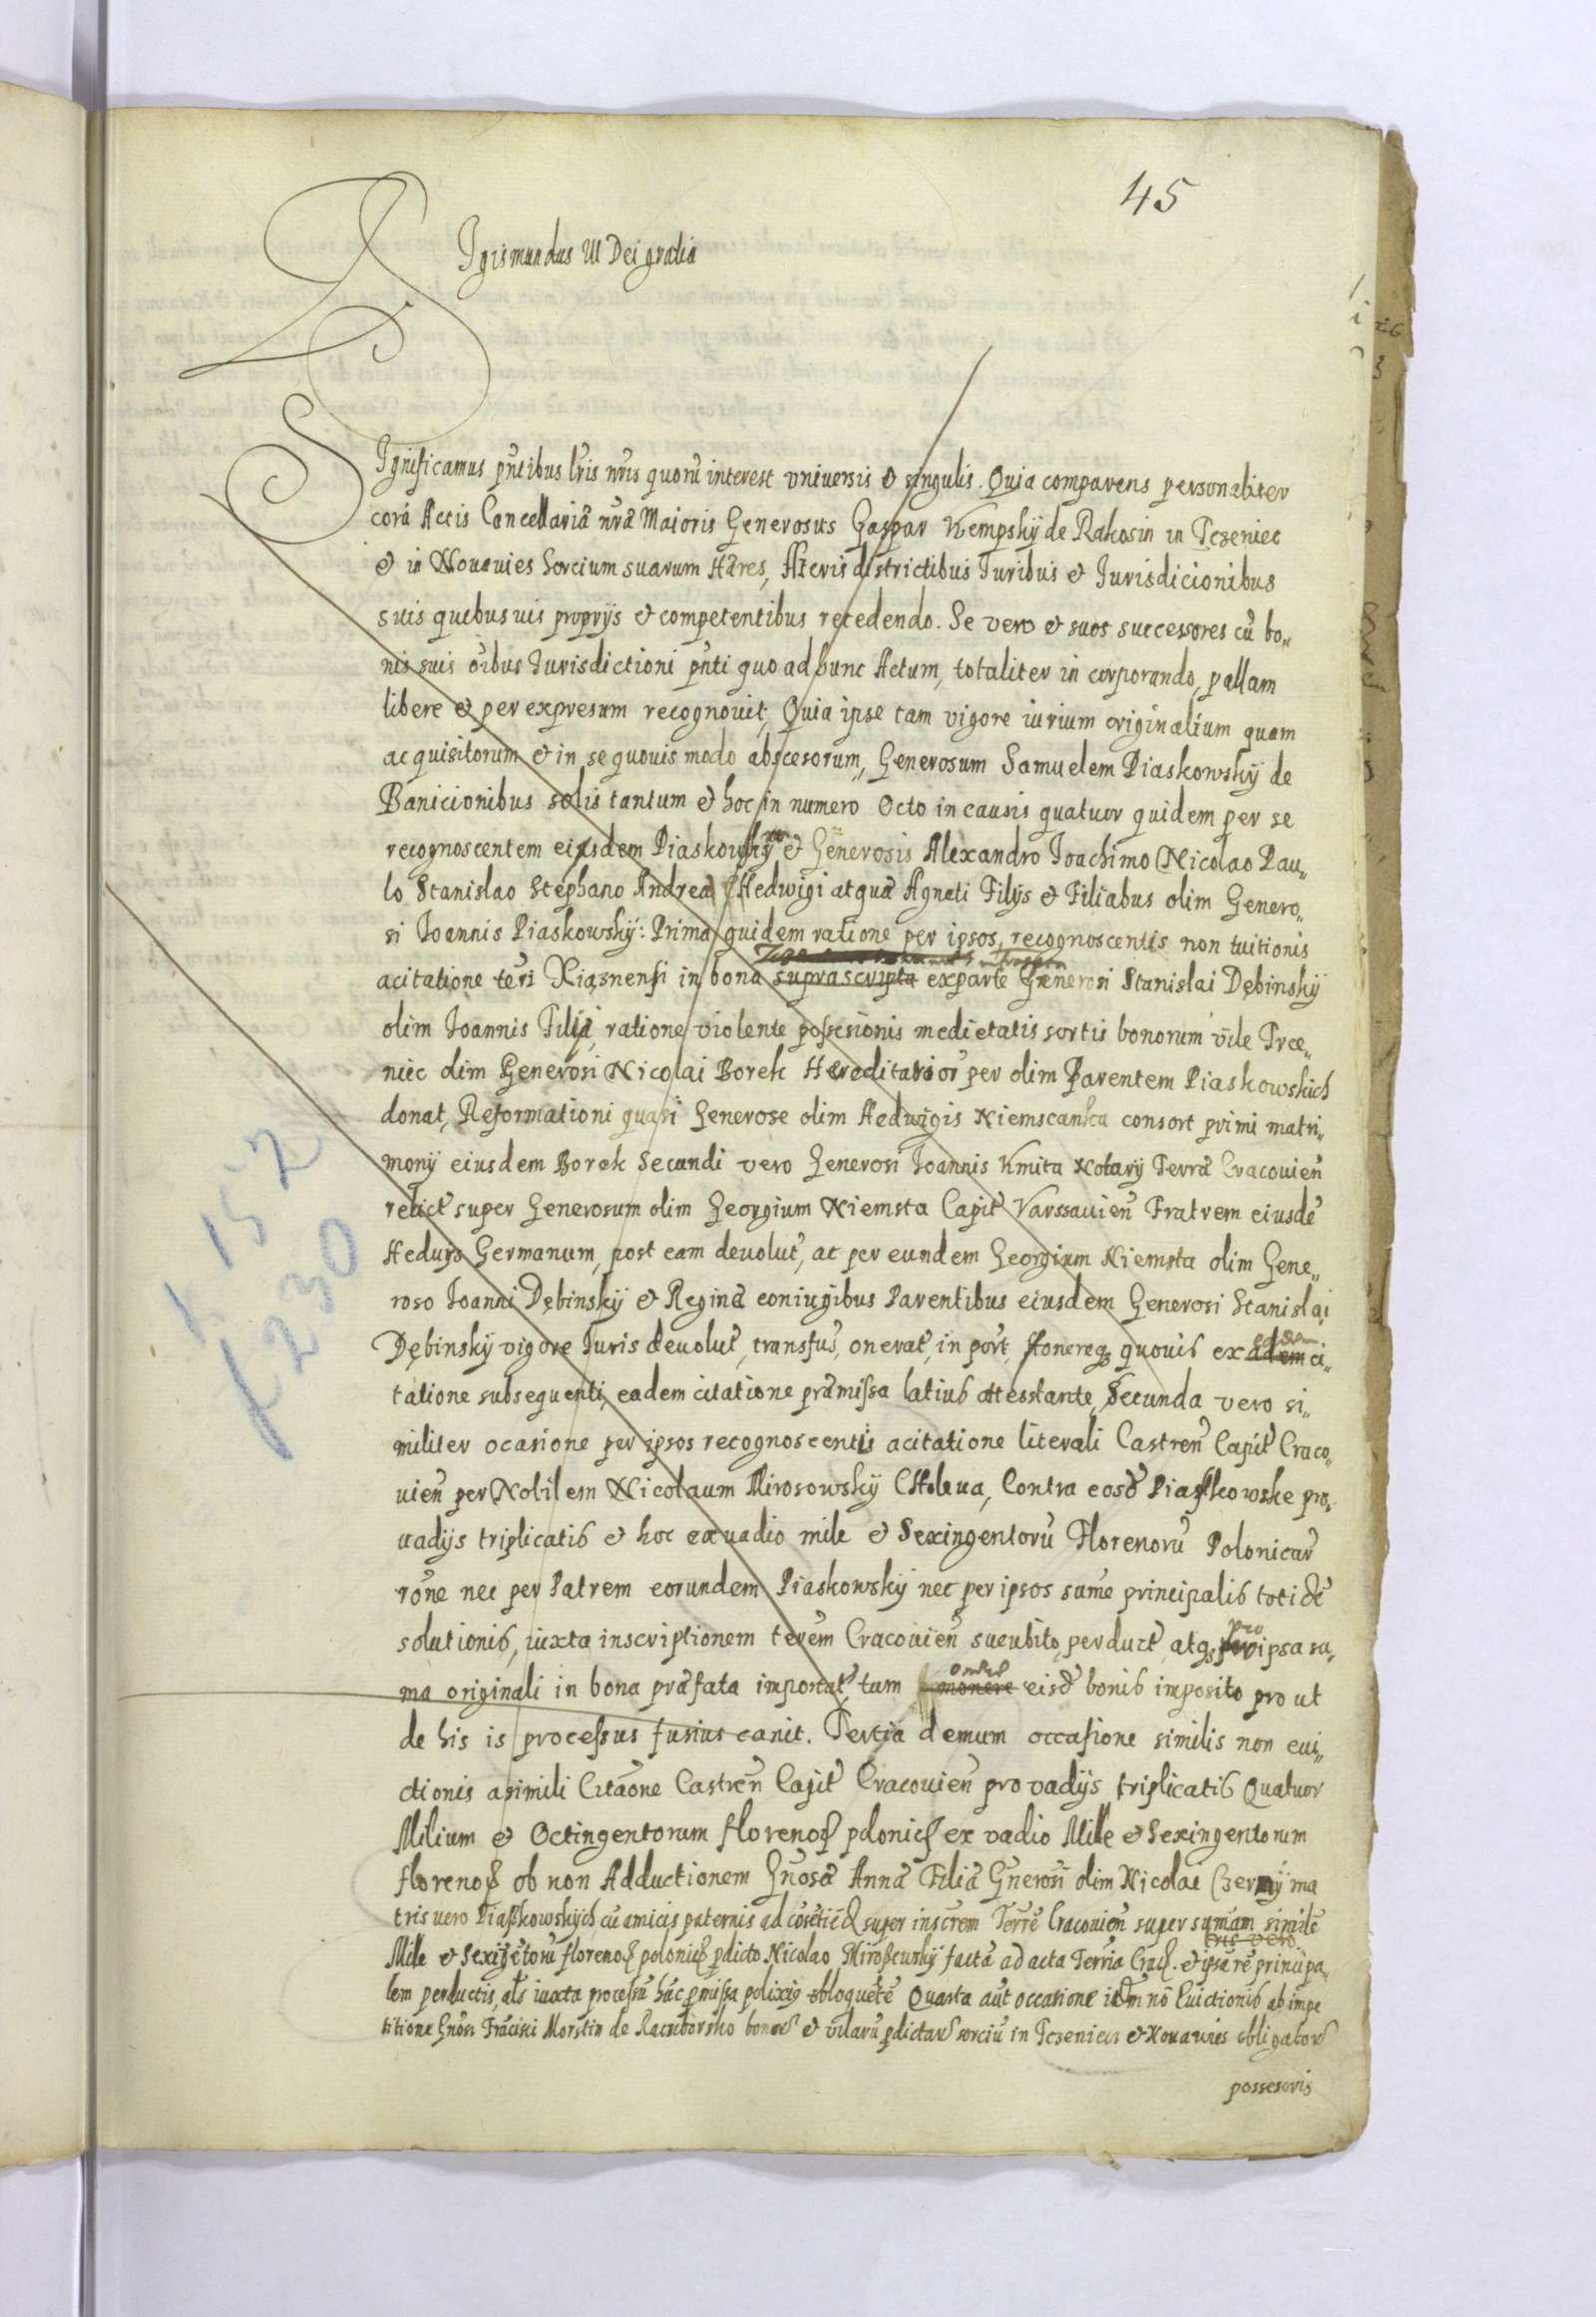 45
Sigismundus III Dei gratia
Significamus pñtibus lr̃is nr̃is quorũ interest vniuersis & singulis. Quia comparens personaliter
corã Actis Cancellariæ nr̃æ Maioris Generosus Gaspar Kempskÿ de Rakosin in Tczeniec
& in Nouauies sorcium suarum Hæres, Azeris districtibus Iuribus & Iurisdicionibus
suis quibusuis proprÿs & competentibus recedendo. Se vero & suos successores cũ bo„
nis suis oĩbus Iurisdictioni pñti quo ad hunc Actum, totaliter in corporando, pallam
libere & per expresum recognouit, Quia ipse tam vigore iurium originalium quam
acquisitorum & in se quouis modo abscesorum, Generosum Samuelem Piaskowskÿ de
Banicionibus solis tantum & hoc in numero Octo in causis quatuor quidem per se
recognoscentem eiusdem Piaskowskÿ & Generosis Alexandro Ioachimo Nicolao Pau„
lo Stanislao Stephano Andreæ Hedwigi atquæ Agneti Filÿs & Filiabus olim Genero„
si Ioannis Piaskowskÿ: Prima quidem ratione per ipsos, recognoscentis non tuitionis
acitatione teri Xiąznensi in bona suprascripta exparte Generosi Stanislai Dębinskÿ
olim Ioannis Filÿ, ratione violente possesionis medietatis sortis bonorum vile Trce„
niec olim Generosi Nicolai Borek Hereditarior per olim Parentem Piaskowskich
donat, Reformationi quasi Generose olim Hedwigis Niemscanka consort primi matri„
monÿ eiusdem Borek Secundi vero Generosi Ioannis Kmita Notarÿ Terræ Cracouieñ
relict super Generosum olim Georgium Niemsta Capit Varssauieñ Fratrem eiusdẽ
Hedwig Germanum, post eam deuolut, ac per eundem Georgium Niemsta olim Gene„
roso Ioanni Dębinskÿ & Reginæ coniugibus Parentibus eiusdem Generosi Stanislai
Dębinskÿ vigore Iuris deuolut, transfus, onerat, in port, honereq; quouis ex adem eadem ci„
tatione subsequenti, eadem citatione præmissa latius attesstante, Secunda vero si„
militer ocasione per ipsos recognoscentis acitatione literali Castreñ Capit Craco„
uieñ per Nobilem Nicolaum Mirosowskÿ Choleua, Contra eosd Piaskowske pro„
uadÿs triplicatis & hoc ex uadio mile & Sexingentorũ Florenorũ Polonicar
rõne nec per Patrem eorundem Piaskowskÿ nec per ipsos sume principalis totidẽ
solutionis, iuxta inscriptionem terem Cracouieñ sucubito, perduct, atq; pro ipsa su„
ma originali in bona præfata importat, tam monere eisd bonis imposito pro ut
de his is processus fusius canit. Tertia demum occasione similis non eui„
ctionis a simili Citaõne Castreñ Capit Cracouieñ pro vadÿs triplicatis Quatuor
Milium & Octingentorum florenoꝝ polonicꝝ ex vadio Mille & Sexingentorum
florenoꝝ ob non Adductionem Gñosæ Annæ Filiæ Gnerosi olim Nicolai Czernÿ ma
tris vero Piaskowskÿch cũ amicis paternis ad super inscrem Terrẽ Cracouieñ super sumam simile
tris vero
Mille & Sexigẽtorũ florenoꝝ polonicꝝ pdicto Nicolao Miroszewskÿ factã ad acta Terria Crac. & ipsã rẽ principa„
lem perductis, als iuxta processũ hãc pmissa polixiq obloquẽtẽ Quarta aũt occasione idem nõ Euictionis ab impe
titione Gnosi Frãcisci Morstin de Raciborsko bonoꝝ & vilarũ pdictaꝝ sorciũ in Tczeniecz & Nouauies obligatoꝝ
possesoris
152
230